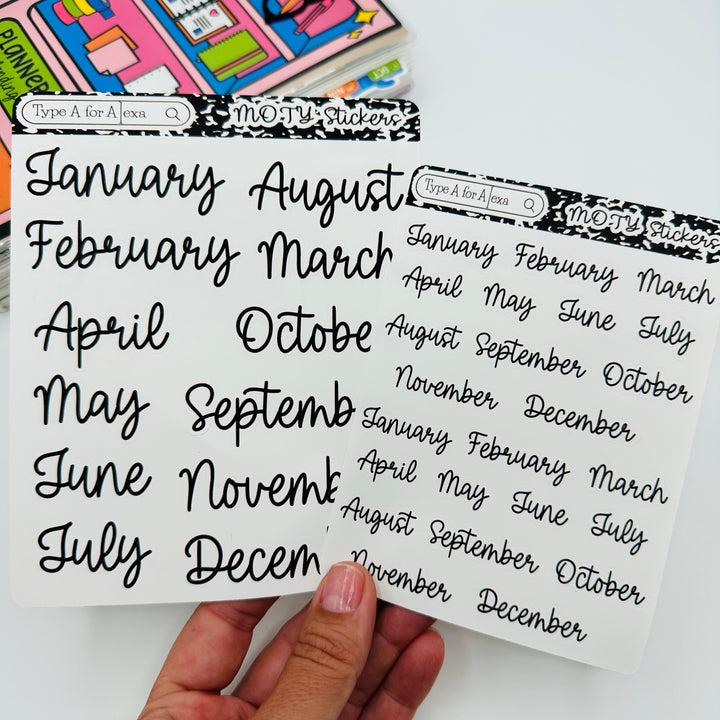 PLANNER
Type A for Alexa
MOTY Stickers
January August
February March
April Octobe
May Septemb
June Novemb
July Decem
Type A for Alexa
MOTY Stickers
January February March
April May June July
August September October
November December
January February March
April May June July
August September October
November December